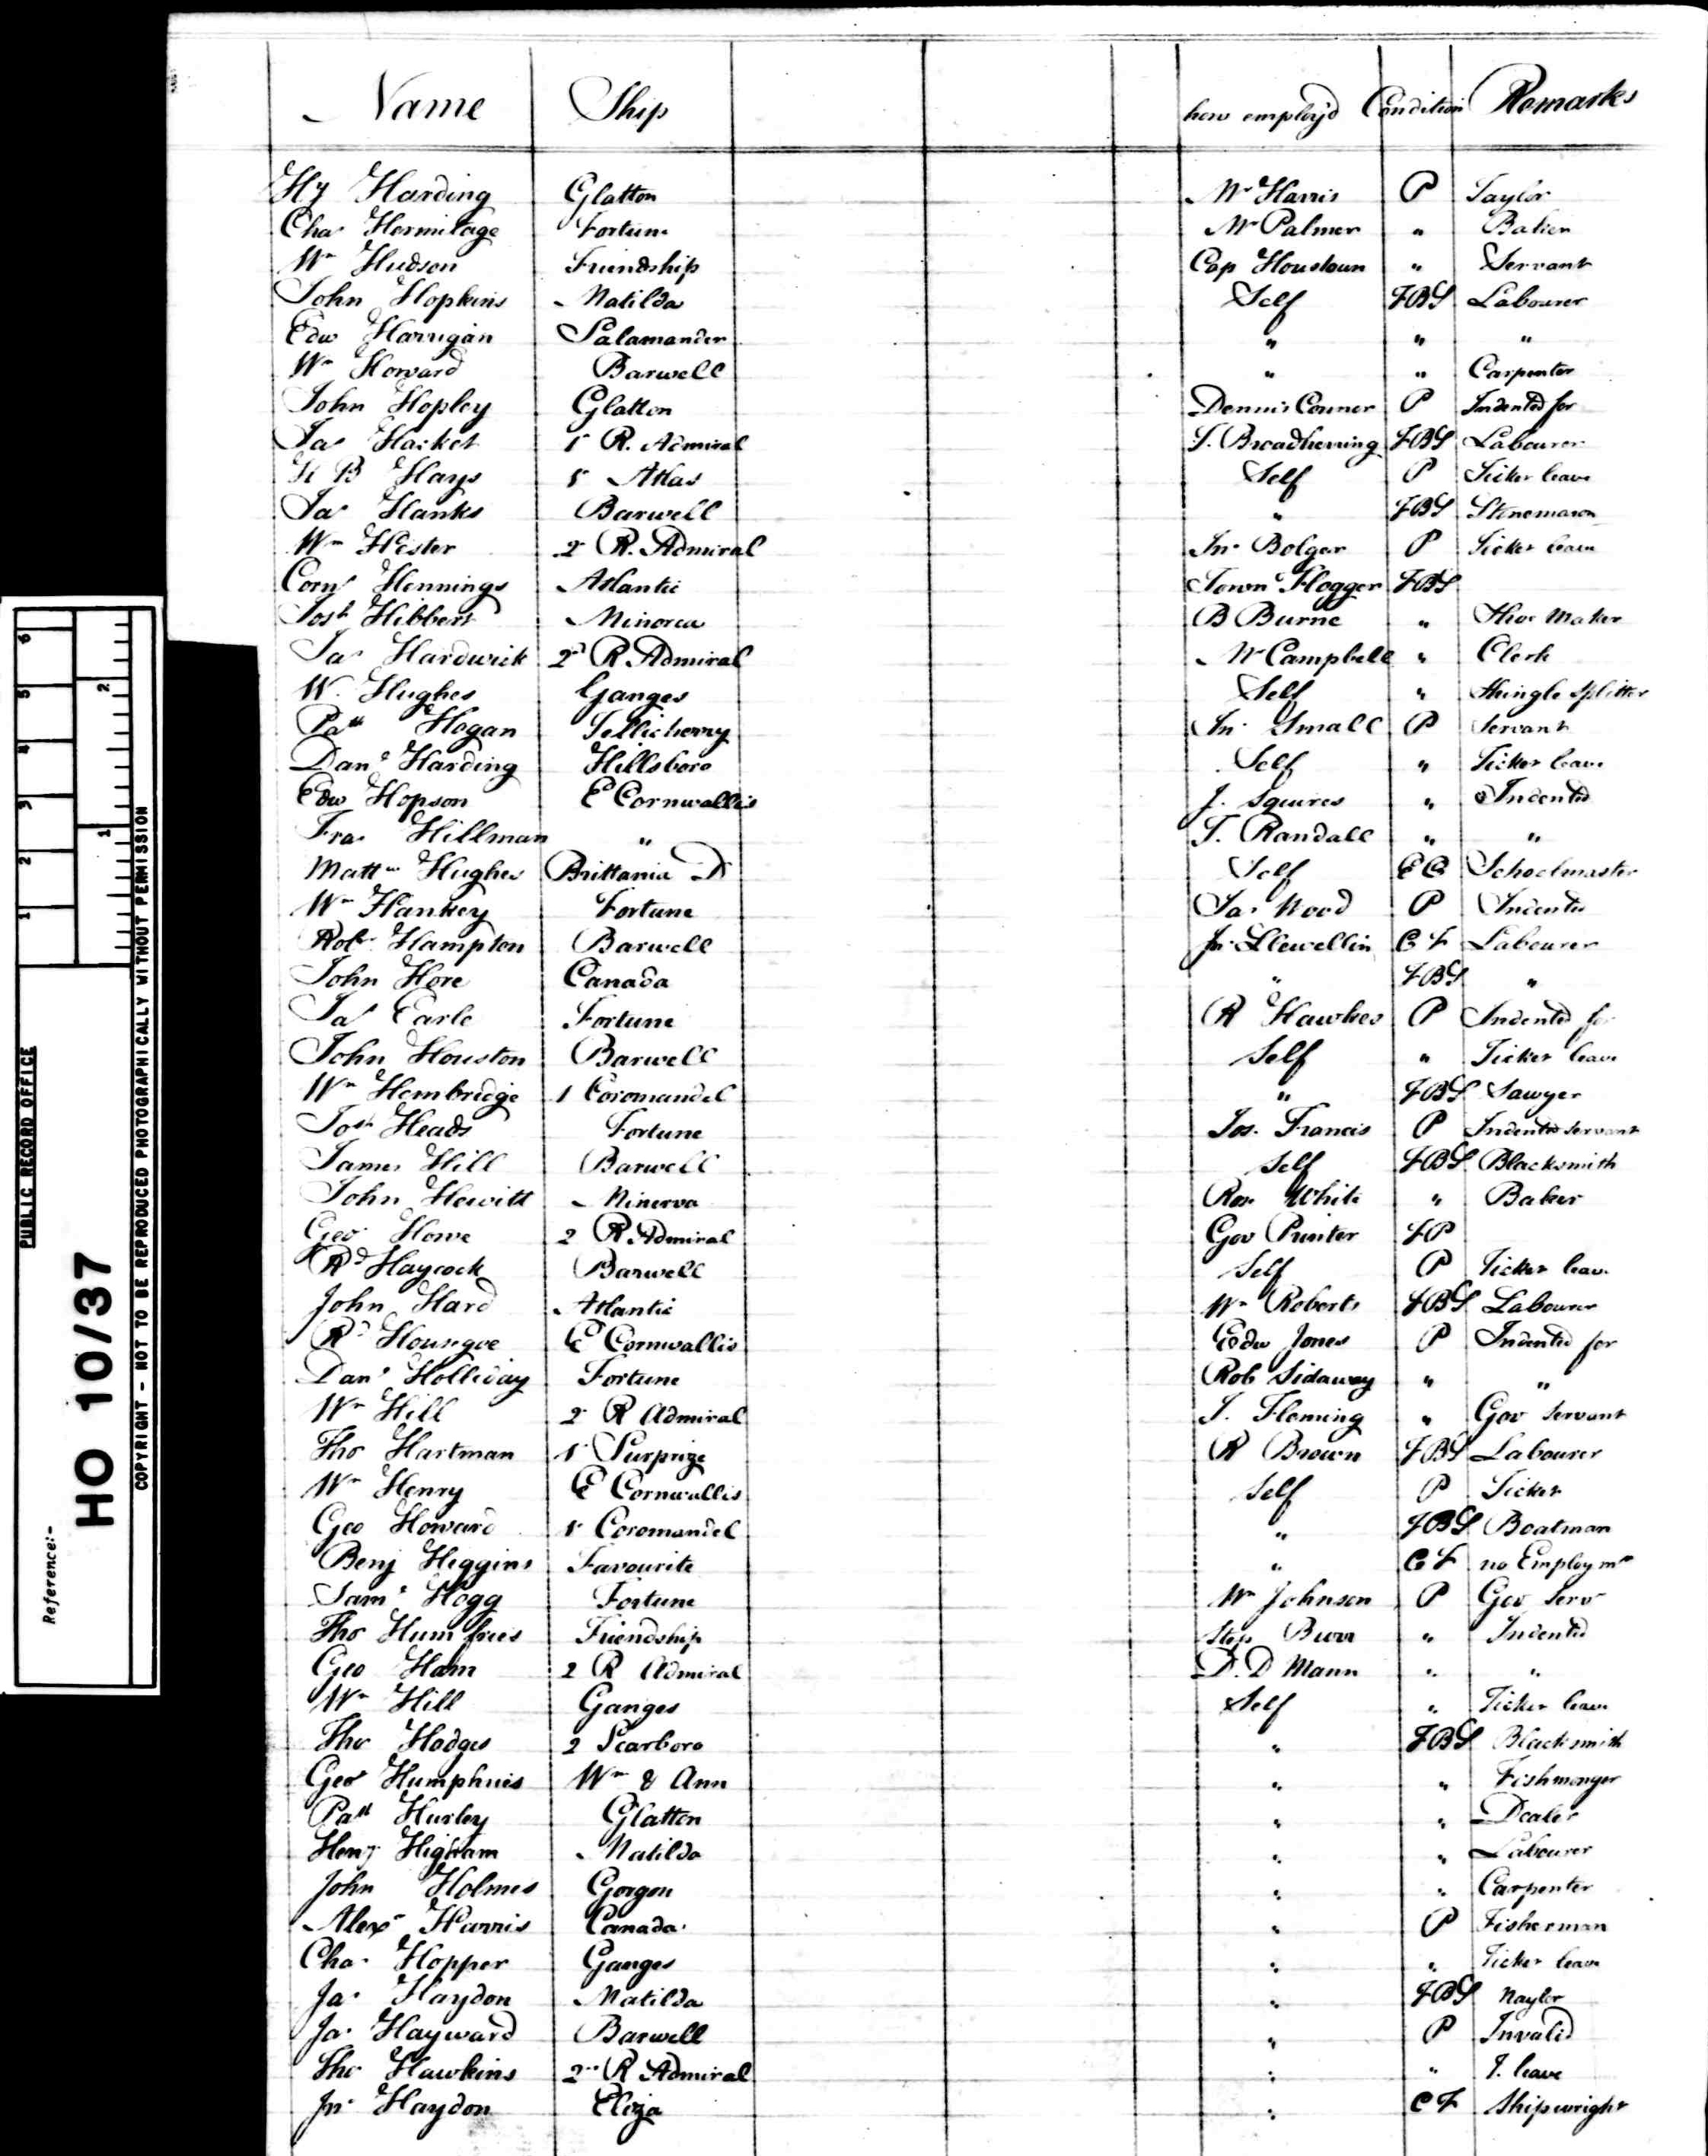 Name Ship how employ'd Condition Remarks
Hy Harding Glatton Mr Harris P Taylor
Chas Hermitage Fortune Mr Palmer " Baker
Wm Hudson Friendship Cap Houstoun " Servant
John Hopkins Matilda Self FBS Labourer
Edw Harrigan Salamander " " "
Wm Howard Barwell " " Carpenter
John Hopley Glatton Dennis Conner P Indented for
Jas Hacket 1 R. Admiral T. Broadhurring FBS Labourer
H B Hays 1 Atlas Self P Ticket leave
Jas Hanks Barwell " FBS Stonemason
Wm Hester 2 R. Admiral Jn Bolger P Ticket leave
Corns Hennings Atlantic Town Flogger FBS
Josh Hibbert Minorca B Burne " Shoe Maker
Jas Hardwick 2d R Admiral Mr Campbell " Clerk
W. Hughes Ganges Self " Shingle Splitter
Patk Hogan Tellicherry Jn Small P Servant
Danl Harding Hillsboro Self " Ticket leave
Edw Hopson E Cornwallis J. Squires " Indented
Fras Hillman " T. Randall " "
Mattw Hughes Brittania D Self EC Schoolmaster
Wm Hankey Fortune Jas Wood P Indented
Robt Hampton Barwell Jn Llewellin CF Labourer
John Hore Canada " FBS "
Jas Earle Fortune R Hawkes P Indented for
John Houston Barwell Self " Ticket leave
Wm Hembridge 1 Coromandel " FBS Sawyer
Josh Heads Fortune Jos. Francis P Indented Servant
James Hill Barwell Self FBS Blacksmith
John Hewitt Minerva Rose White " Baker
Geo Howe 2 R Admiral Gov Printer FP
Rd Haycock Barwell Self P Ticket leave
John Hard Atlantic Wm Roberts FBS Labourer
Rd Houngoe E Cornwallis Edw Jones P Indented for
Danl Holliday Fortune Rob Sidaway " "
Wm Hill 2 R Admiral J. Fleming " Gov Servant
Tho Hartman 1 Surprize R Brown FBS Labourer
Wm Henry E Cornwallis Self P Ticket
Geo Howard 1 Coromandel " FBS Boatman
Benj Higgins Favourite " CF no Employmt
Saml Hogg Fortune Wm Johnson P Gov Serv
Tho Humfries Friendship Step Burr " Indented
Geo Ham 2 R Admiral D. D Mann " "
Wm Hill Ganges Self " Ticket leave
Tho Hodges 2 Scarboro " FBS Blacksmith
Geo Humphries Wm & Ann " " Fishmonger
Patk Hurley Glatton " " Dealer
Heny Higham Matilda " " Labourer
John Holmes Gorgon " " Carpenter
Alexr Harris Canada " P Fisherman
Chas Hopper Ganges " " Ticket leave
Jas Haydon Matilda " FBS Naylor
Jas Hayward Barwell " P Invalid
Tho Hawkins 2d R Admiral " " T. leave
Jn Haydon Eliza " CF Shipwright
PUBLIC RECORD OFFICE
Reference:-
HO 10/37
COPYRIGHT - NOT TO BE REPRODUCED PHOTOGRAPHICALLY WITHOUT PERMISSION
1 2 3 4 5 6
1 2